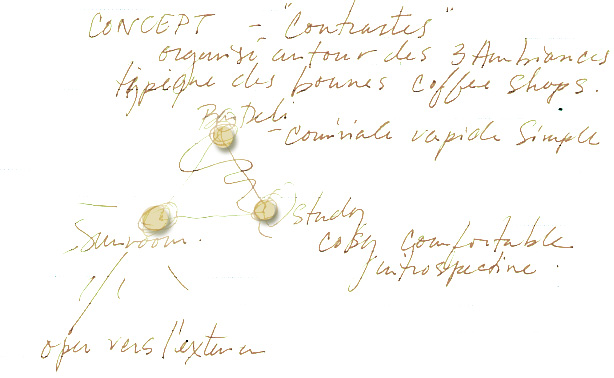 CONCEPT - "Contrastes"
organisé autour des 3 Ambiances
typique des bonnes coffee shops.
Bar Deli
- conviviale rapide simple
Study
Sunroom.
cosy comfortable
introspective.
open vers l'exterieur